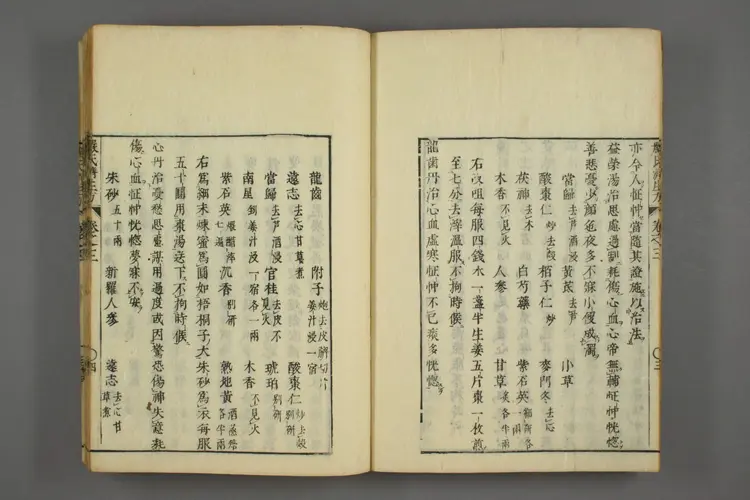 亦令人怔忡當隨其證施以治法
益榮湯治思慮過制耗傷心血心帝無輔怔忡恍惚
善悲憂少顏色夜多不寐小便或濁
當歸去蘆酒浸 黃芪去蘆 小草
酸棗仁炒去殼 栢子仁炒 麥門冬去心
茯神去木 白芍藥 紫石英
木香不見火 人參 甘草
右㕮咀每服四錢水一盞半生姜五片棗一枚煎
至七分去滓溫服不拘時候
龍齒丹治心血虛寒怔忡不已痰多恍惚
嚴氏濟生方 卷之三 三
龍齒 附子炮去皮臍切片姜汁浸一宿
遠志去心甘草煮 酸棗仁炒去殼別研
當歸去蘆酒浸 官桂去皮不見火 琥珀別研
南星剉姜汁浸一宿各一兩 木香不見火
紫石英煆醋淬七遍 沉香別研 熟地黃酒蒸焙各半兩
右為細末煉蜜為圓如梧桐子大朱砂為衣每服
五十圓用棗湯送下不拘時候
心丹治憂愁思慮謀用過度或因驚恐傷神失志耗
傷心血怔忡恍惚夢寐不寧
朱砂五十兩 新羅人參 遠志去心甘草煮
嚴氏濟生方 卷之三 四